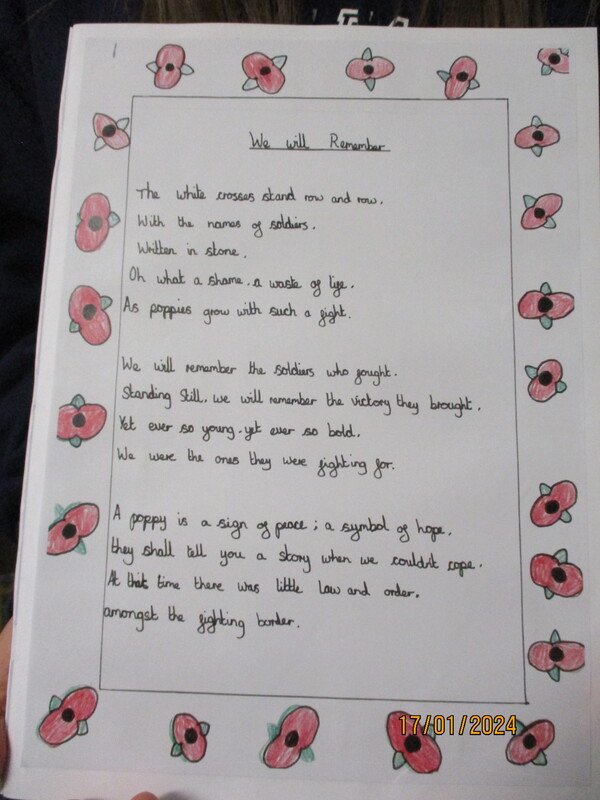 We will Remember
The white crosses stand row and row.
With the names of soldiers.
Written in stone.
Oh what a shame. a waste of life.
As poppies grow with such a fight.
We will remember the soldiers who fought.
Standing Still. we will remember the victory they brought.
Yet ever so young. yet ever so bold.
We were the ones they were fighting for.
A poppy is a sign of peace; a symbol of hope.
they shall tell you a story when we couldn't cope.
At that time there was little law and order.
amongst the fighting border.
17/01/2024